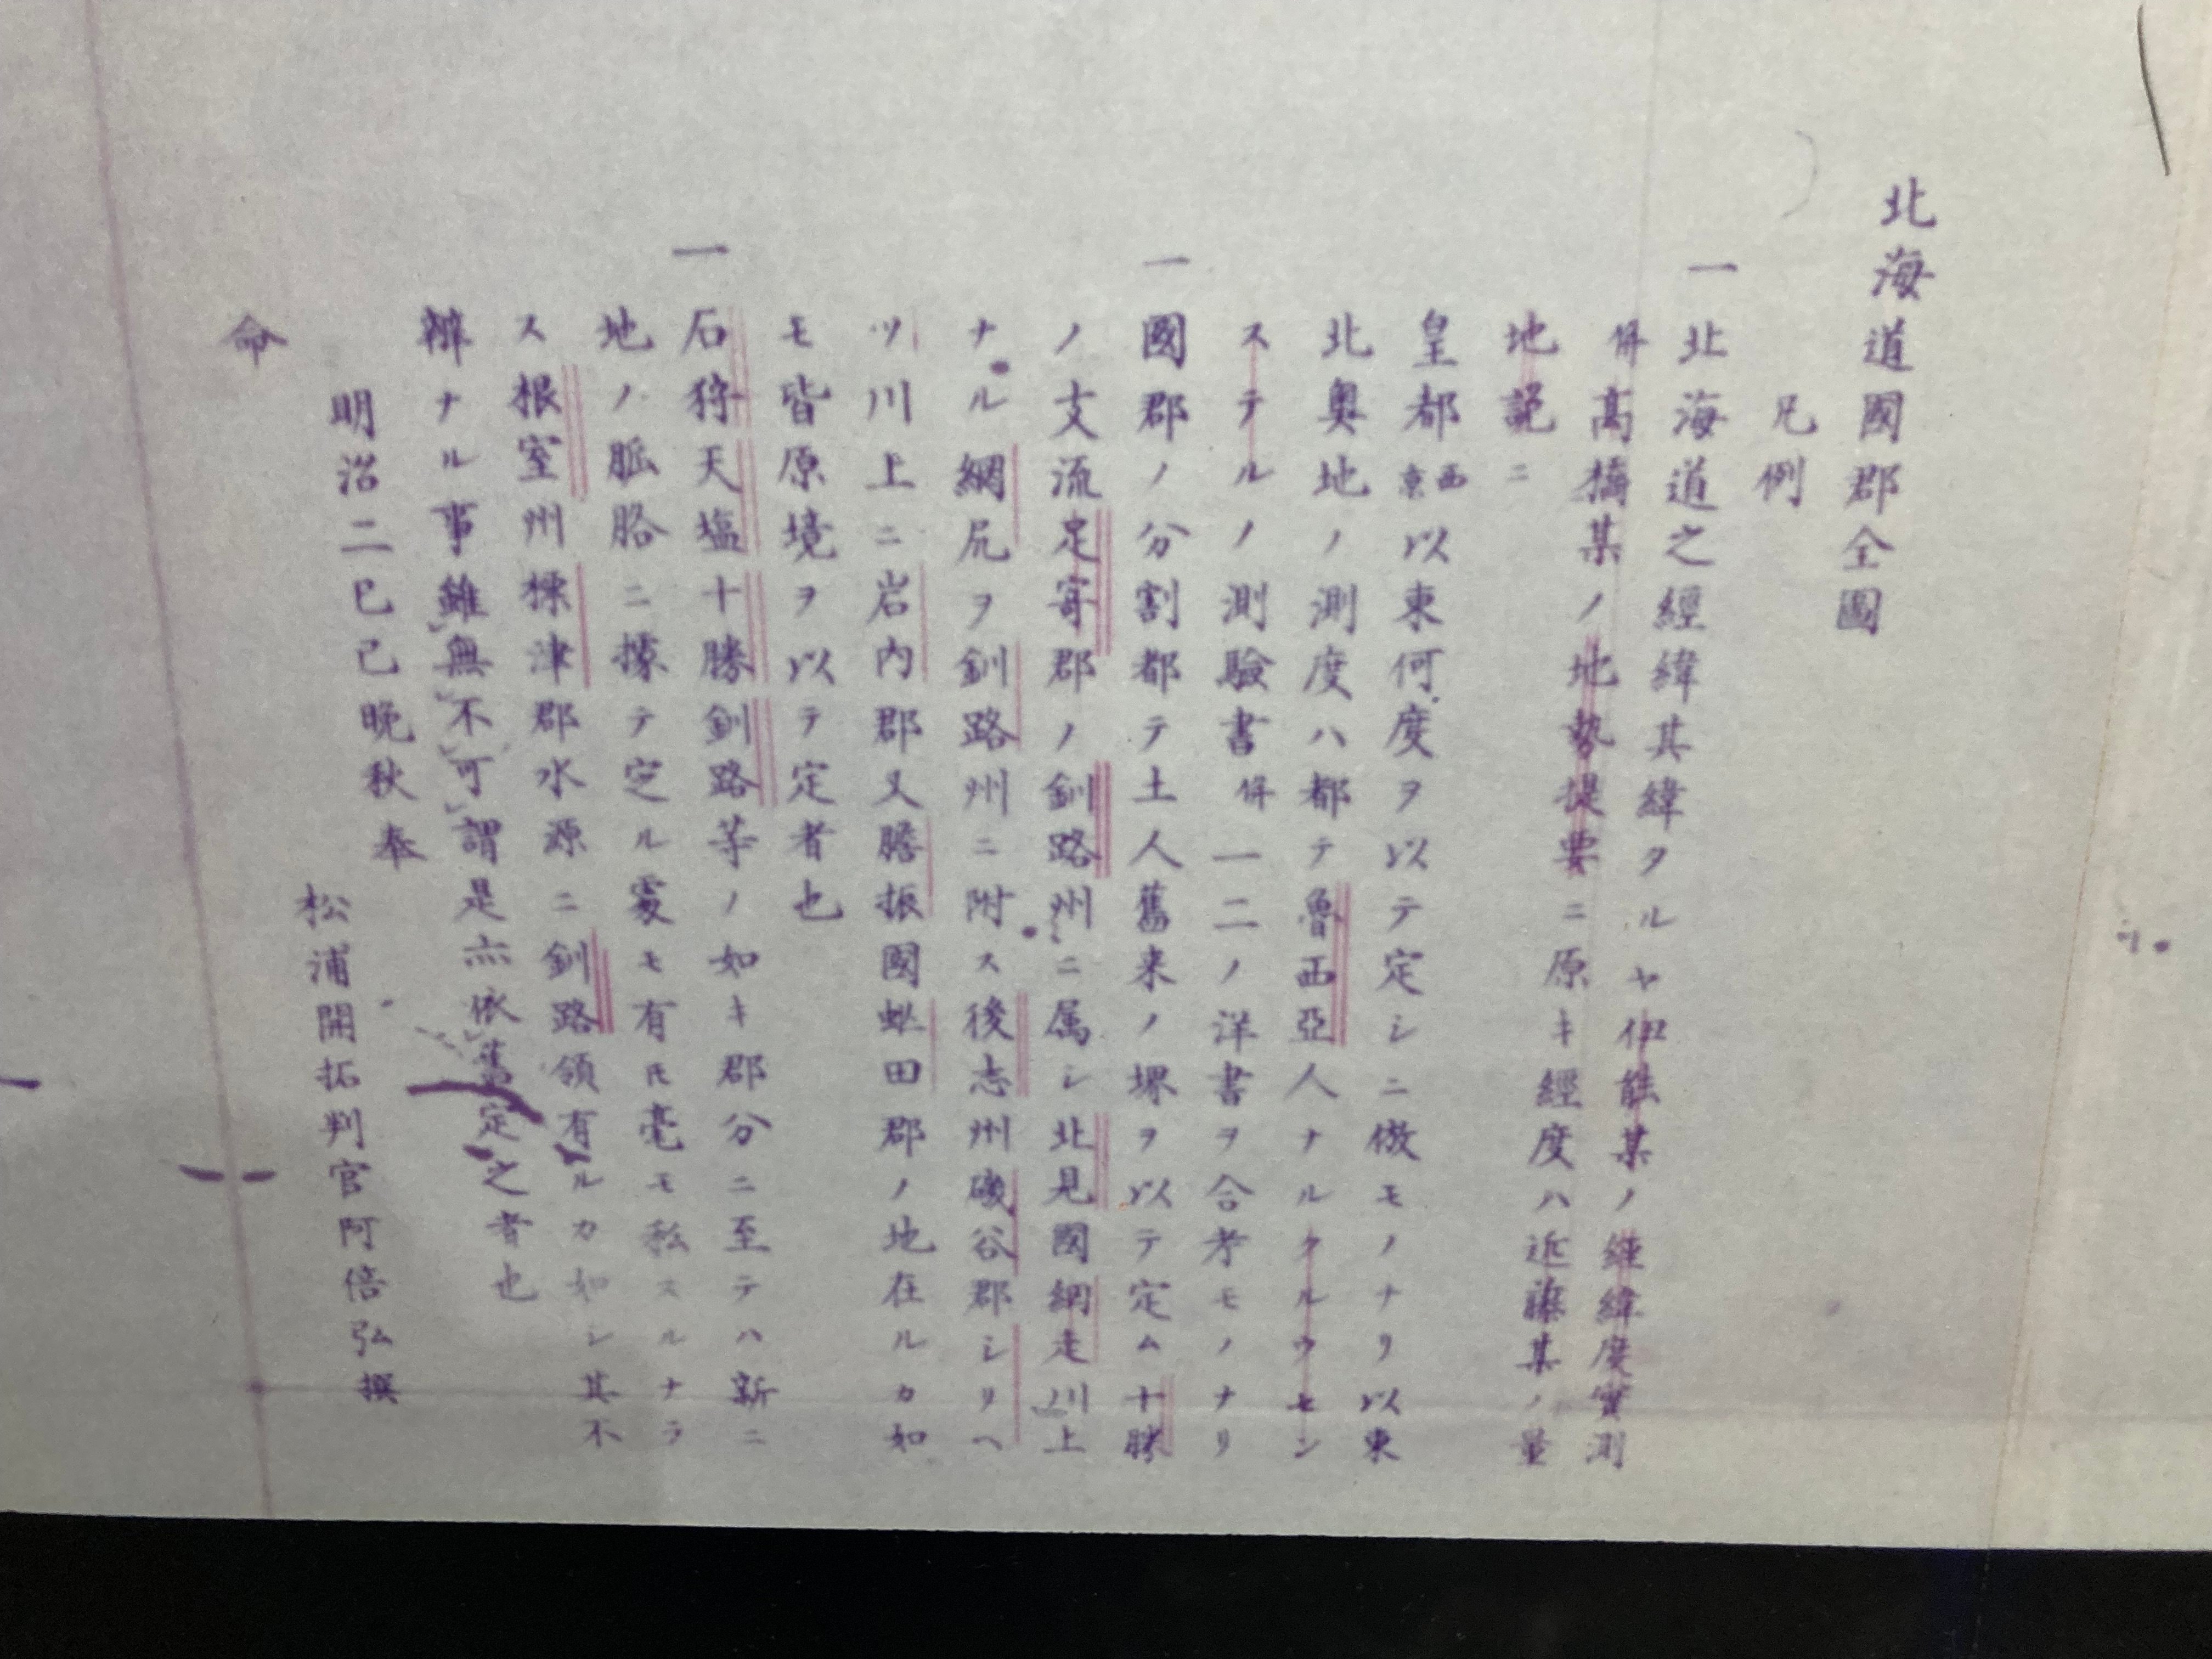 北海道國郡全圖
凡例
一 北海道之經緯其緯タルヤ伊能某ノ經緯度實測
併高橋某ノ地勢提要ニ原キ經度ハ近藤某ノ量
地説ニ
皇都西京以東何度ヲ以テ定シニ傚モノナリ以東
北奥地ノ測度ハ都テ魯西亞人ナルクルウセン
ステルノ測驗書併一二ノ洋書ヲ合考モノナリ
一 國郡ノ分割都テ土人舊来ノ堺ヲ以テ定ム十勝
ノ支流足寄郡ノ釧路州ニ属シ北見國網走川上
ナル網尻ヲ釧路州ニ附ス後志州磯谷郡シリヘ
ツ川上ニ岩内郡又膽振國虻田郡ノ地在ルカ如
モ皆原境ヲ以テ定者也
一 石狩天塩十勝釧路等ノ如キ郡分ニ至テハ新ニ
地ノ脈胳ニ據テ定ル處モ有氏毫モ私スルナラ
ス根室州標津郡水源ニ釧路領有ルカ如シ其不
辨ナル事雖無不可謂是亦依舊定之者也
明治二巳己晩秋奉
命
松浦開拓判官阿倍弘撰